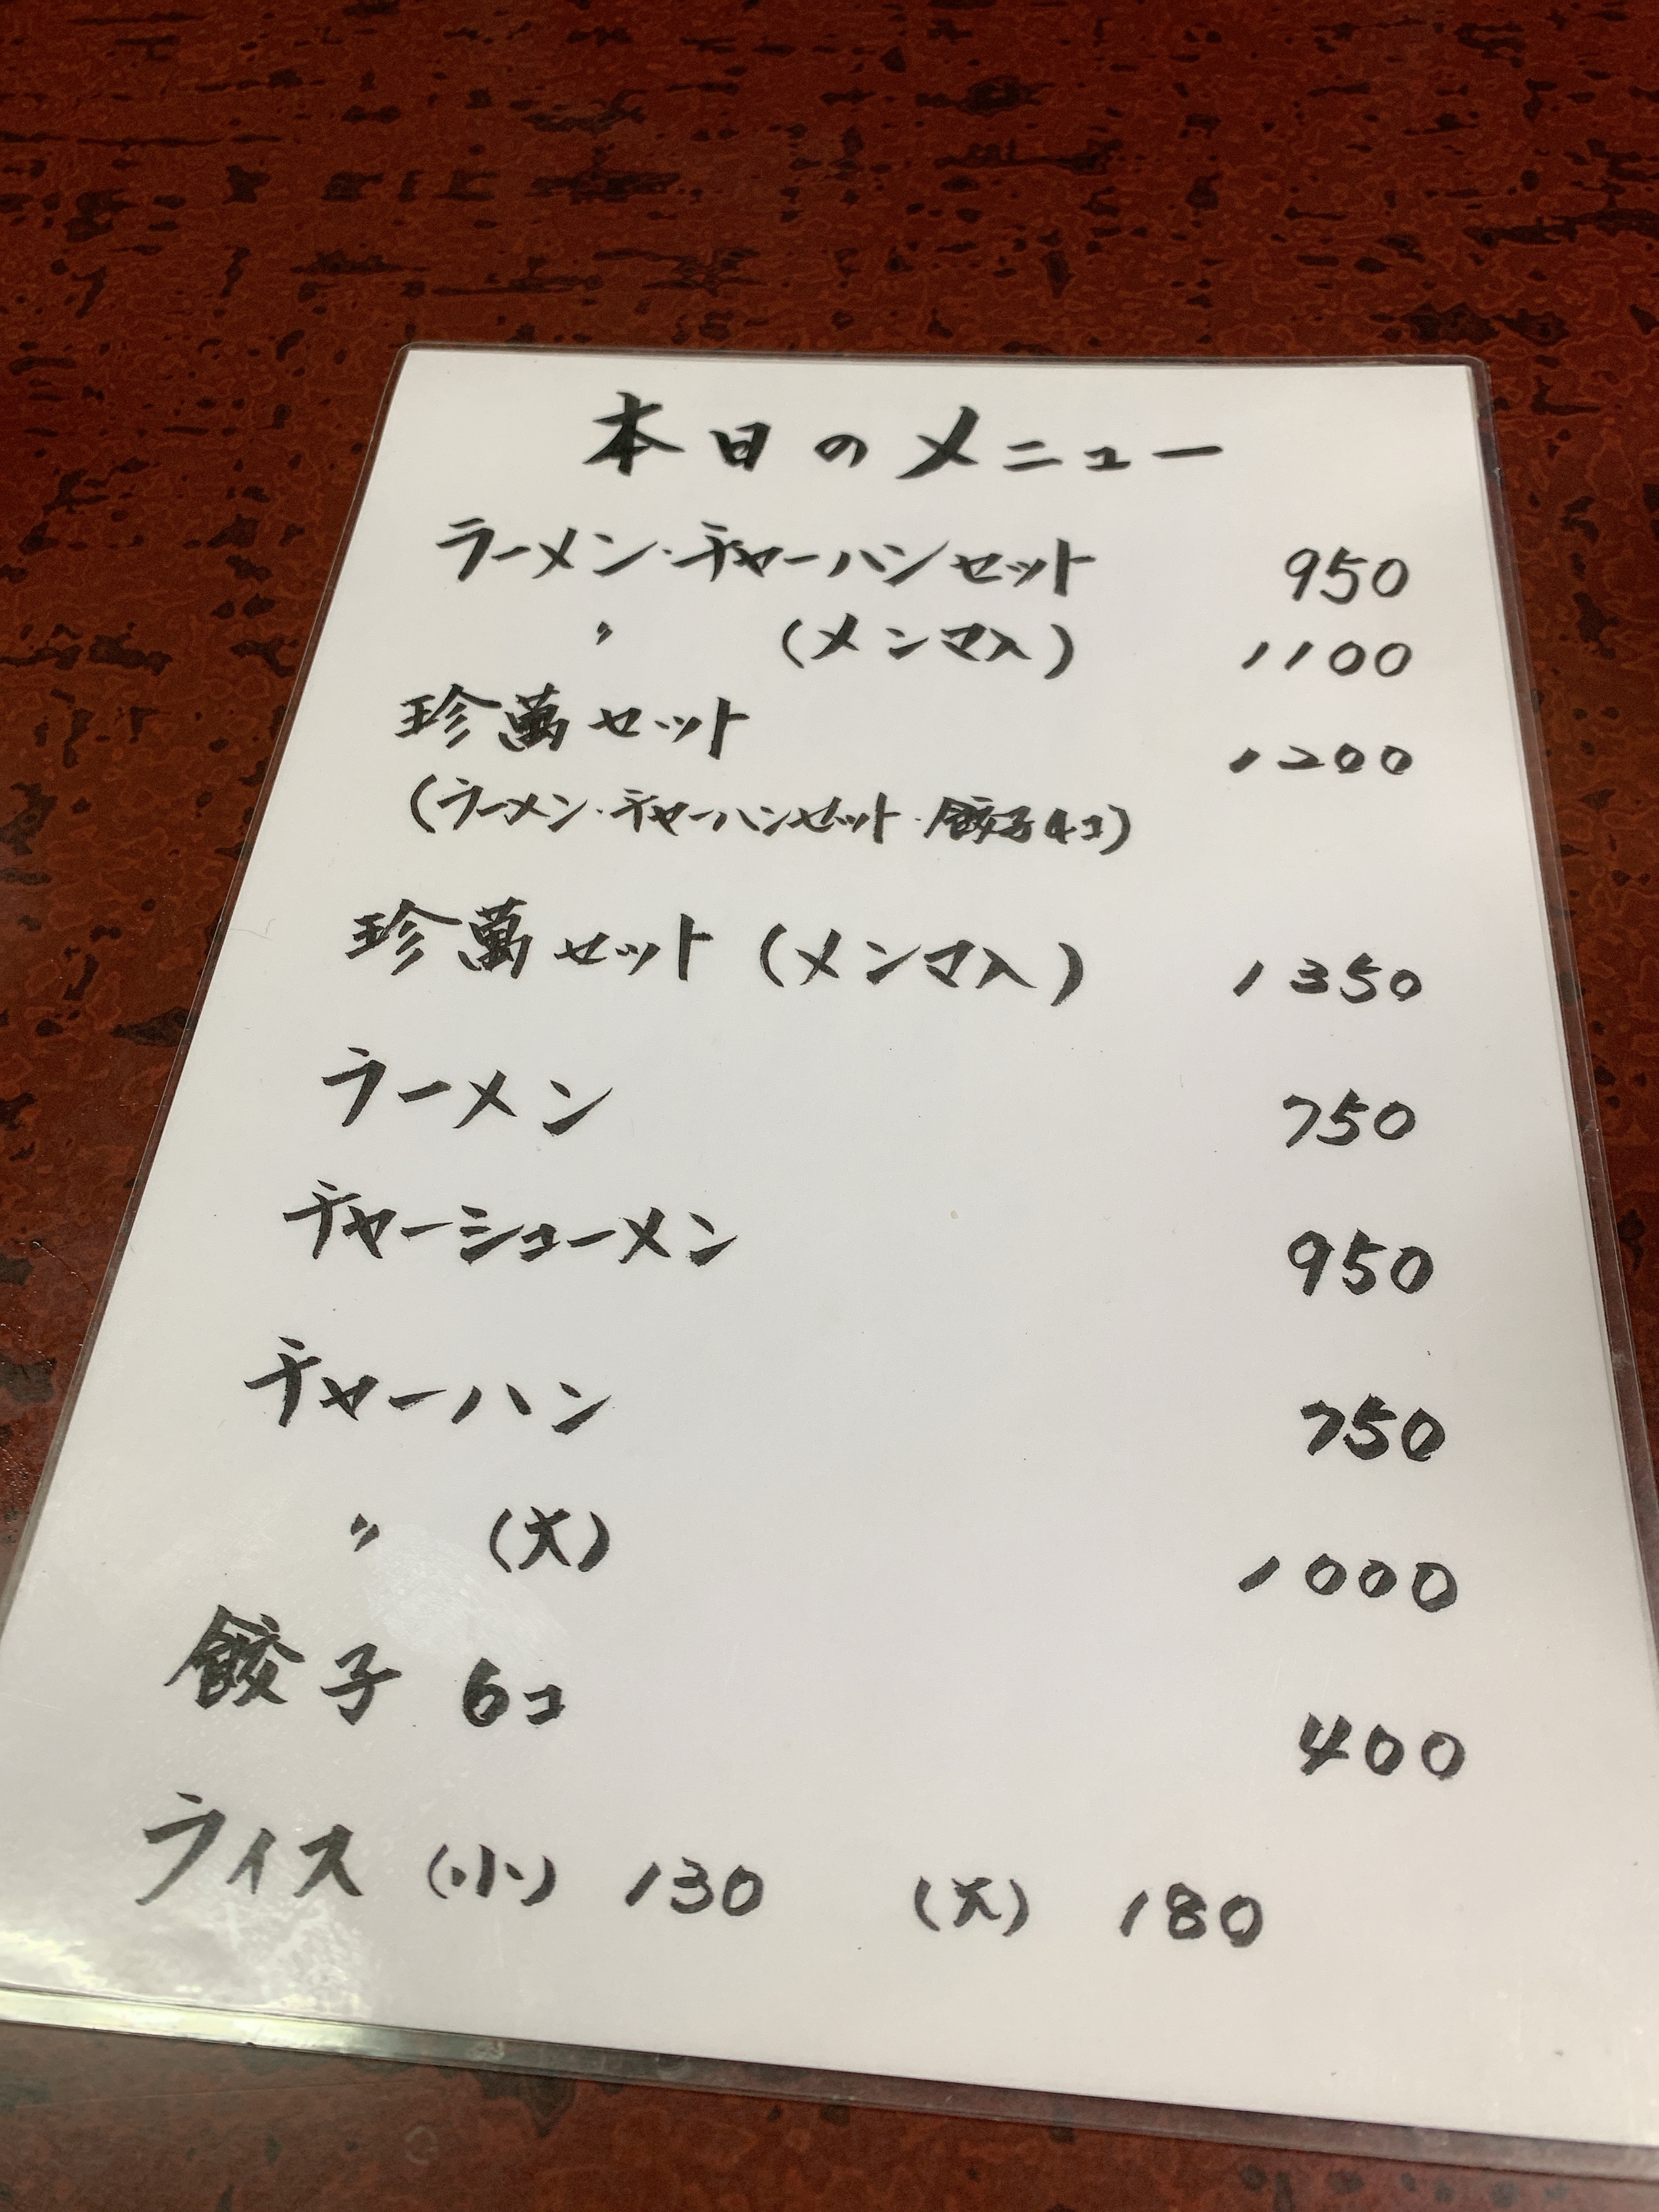 本日のメニュー
ラーメン・チャーハンセット 950
〃 (メンマ入) 1100
珍萬セット 1200
(ラーメン・チャーハンセット・餃子4コ)
珍萬セット(メンマ入) 1350
ラーメン 750
チャーシューメン 950
チャーハン 750
〃 (大) 1000
餃子 6コ 400
ライス (小) 130 (大) 180